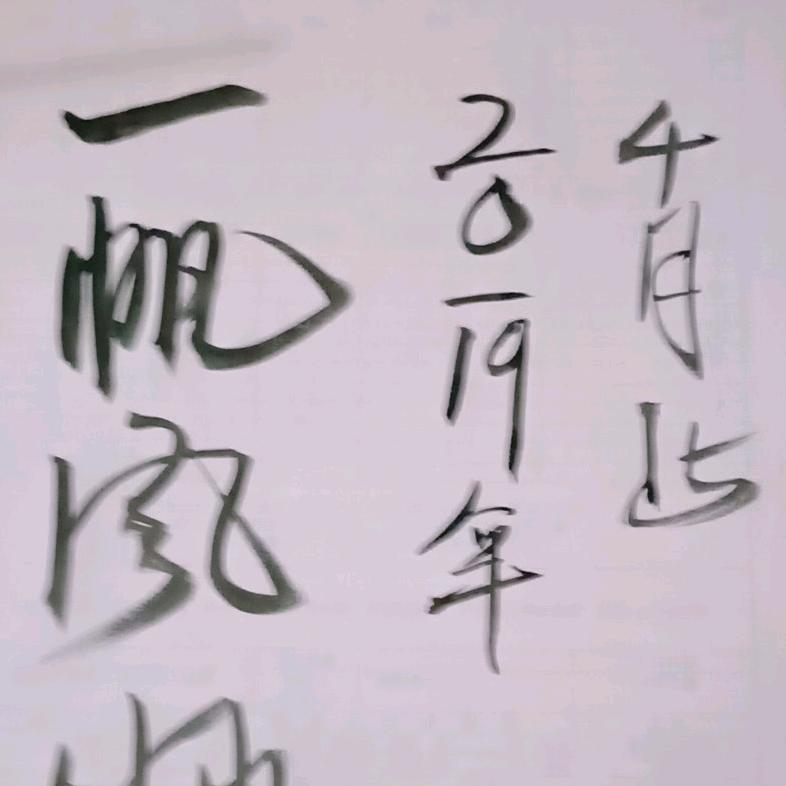 一帆风
2019年
4月15